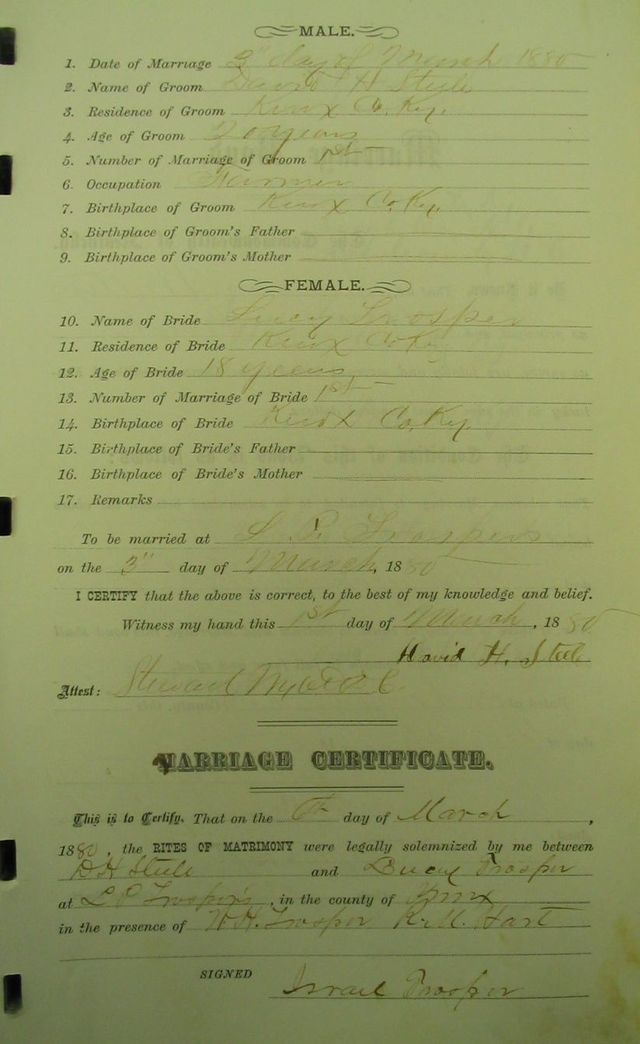 MALE.
1. Date of Marriage 3" day of March 1880
2. Name of Groom David H Steele
3. Residence of Groom Knox Co. Ky.
4. Age of Groom 20 years
5. Number of Marriage of Groom 1st
6. Occupation Farmer
7. Birthplace of Groom Knox Co. Ky.
8. Birthplace of Groom's Father
9. Birthplace of Groom's Mother
FEMALE.
10. Name of Bride Lucy Trosper
11. Residence of Bride Knox Co Ky
12. Age of Bride 18 years
13. Number of Marriage of Bride 1st
14. Birthplace of Bride Knox Co, Ky.
15. Birthplace of Bride's Father
16. Birthplace of Bride's Mother
17. Remarks
To be married at Trospers
on the 3" day of March, 1880
I CERTIFY that the above is correct, to the best of my knowledge and belief.
Witness my hand this 1st day of March, 1880
David H. Steele
Attest:
MARRIAGE CERTIFICATE.
This is to Certify, That on the day of March,
1880, the RITES OF MATRIMONY were legally solemnized by me between
D H Steele and Lucy Trosper
at Trosper's, in the county of Knox
in the presence of W. H. Trosper Hart
SIGNED
Israel Trosper